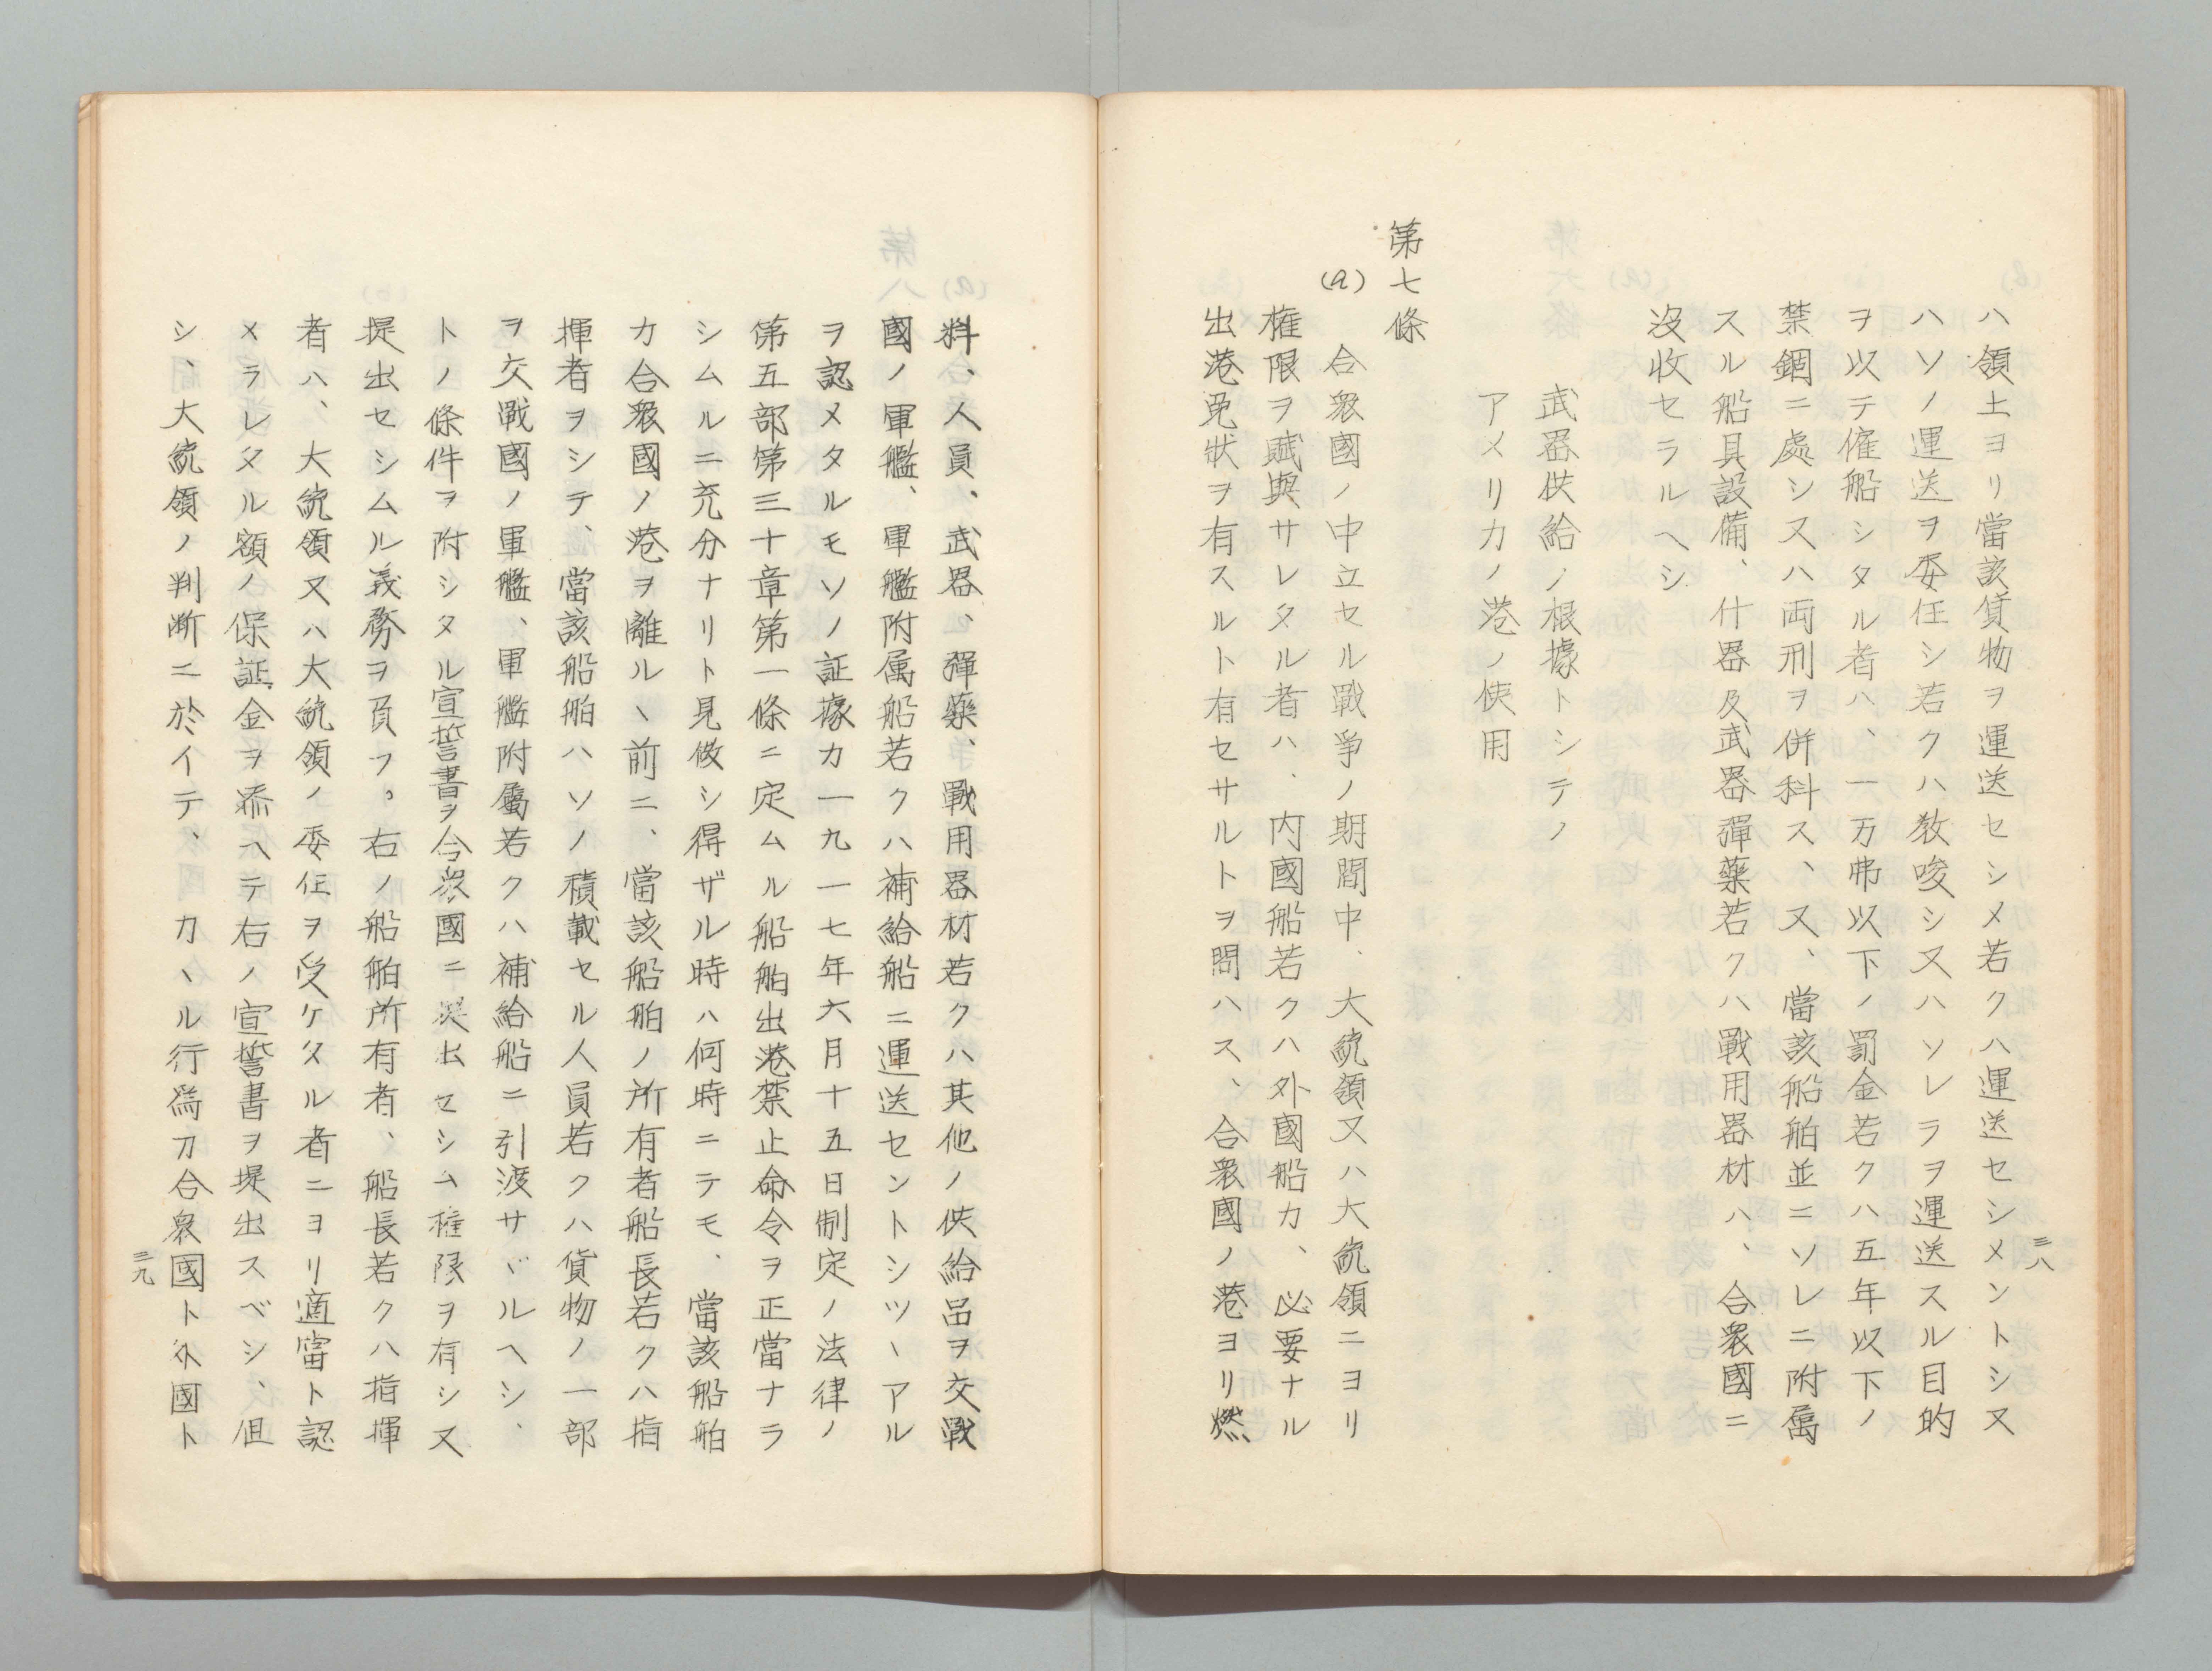 ハ領土ヨリ當該貨物ヲ運送セシメ若クハ運送セシメントシ又
ハソノ運送ヲ委任シ若クハ教唆シ又ハソレラヲ運送スル目的
ヲ以テ傭船シタル者ハ、一万弗以下ノ罰金若クハ五年以下ノ
禁錮ニ處シ又ハ両刑ヲ併科ス、又、當該船舶並ニソレニ附属
スル船具設備、什器及武器彈藥若クハ戰用器材ハ、合衆國ニ
沒收セラルヘシ
武器供給ノ根據トシテノ
アメリカノ港ノ使用
第七條
(a) 合衆國ノ中立セル戰爭ノ期間中、大統領又ハ大統領ニヨリ
権限ヲ賦與サレタル者ハ、内國船若クハ外國船カ、必要ナル
出港免狀ヲ有スルト有セサルトヲ問ハス、合衆國ノ港ヨリ燃
三八
料、人員、武器、彈藥、戰用器材若クハ其他ノ供給品ヲ交戰
國ノ軍艦、軍艦附属船若クハ補給船ニ運送セントシツヽアル
ヲ認メタルモソノ証據カ一九一七年六月十五日制定ノ法律ノ
第五部第三十章第一條ニ定ムル船舶出港禁止命令ヲ正當ナラ
シムルニ充分ナリト見做シ得ザル時ハ何時ニテモ、當該船舶
カ合衆國ノ港ヲ離ルヽ前ニ、當該船舶ノ所有者船長若クハ指
揮者ヲシテ、當該船舶ハソノ積載セル人員若クハ貨物ノ一部
ヲ交戰國ノ軍艦、軍艦附屬若クハ補給船ニ引渡サヾルヘシ、
トノ條件ヲ附シタル宣誓書ヲ合衆國ニ提出セシム權限ヲ有シ又
提出セシムル義務ヲ負フ。右ノ船舶所有者、船長若クハ指揮
者ハ、大統領又ハ大統領ノ委任ヲ受ケタル者ニヨリ適當ト認
メラレタル額ノ保証金ヲ添ヘテ右ノ宣誓書ヲ提出スベシ、但
シ、大統領ノ判断ニ於イテ、カヽル行為カ合衆國ト外國ト
三九